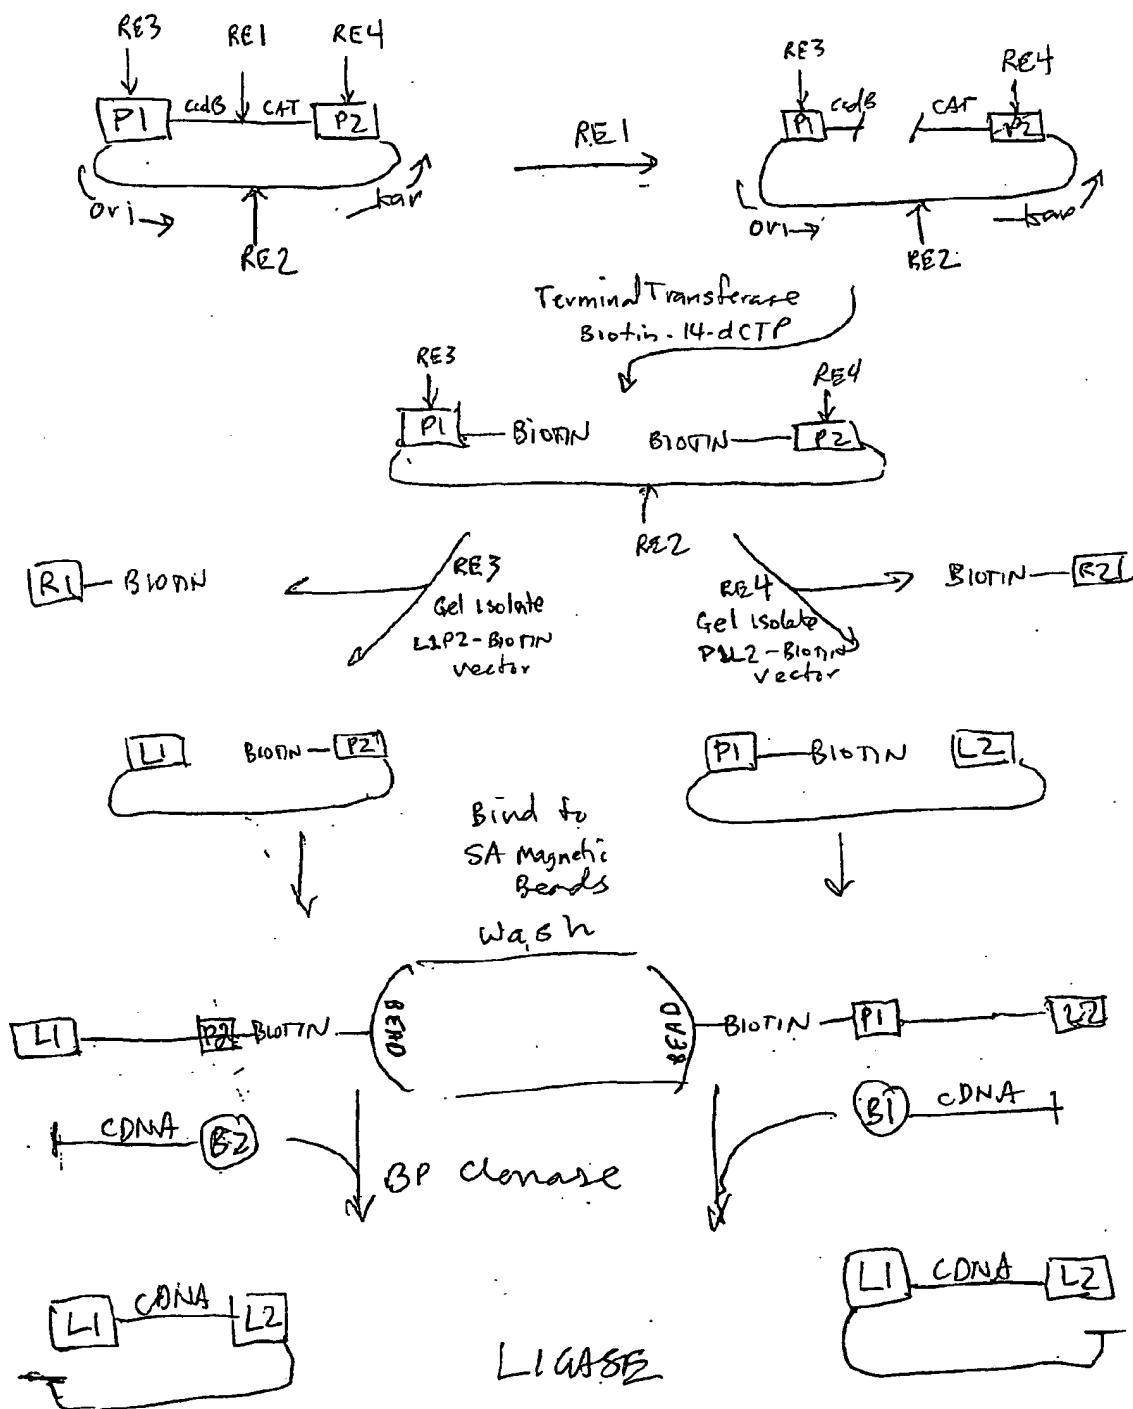 RE3 RE1 RE4
P1 ccdB CAT P2
ori kan
RE2
RE1
RE3 RE4
P1 ccdB CAT P2
ori kan
RE2
Terminal Transferase
Biotin-14-dCTP
RE3 RE4
P1 BIOTIN BIOTIN P2
RE2
R1 BIOTIN
RE3
Gel isolate
L1P2-BIOTIN
vector
RE4
Gel isolate
P1L2-BIOTIN
vector
BIOTIN R2
L1 BIOTIN P2
P1 BIOTIN L2
Bind to
SA Magnetic
Beads
Wash
L1 P2 BIOTIN BEAD
BEAD BIOTIN P1 L2
CDNA B2
B1 CDNA
BP clonase
L1 CDNA L2
L1 CDNA L2
LIGASE